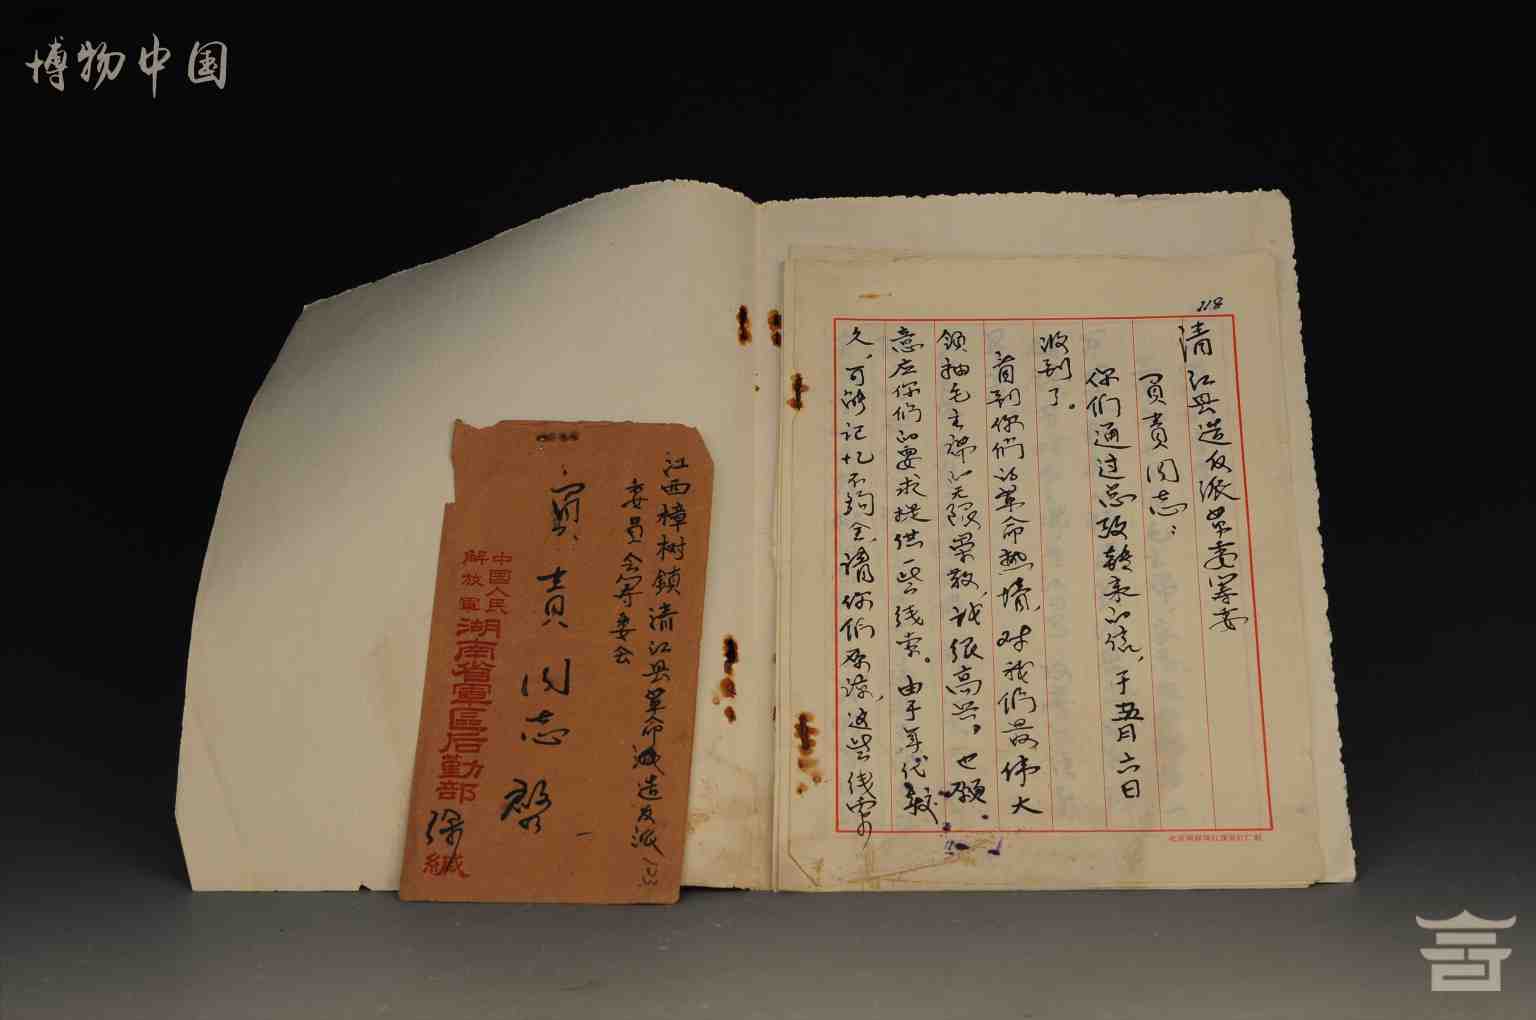 博物中国
218
清江县造反派常委筹委
负责同志：
你们通过总政转来的信，于五月六日
收到了。
首到你们的革命热情，对我们最伟大
领袖毛主席的无限崇敬，我很高兴，也愿
意应你们的要求提供一些线索。由于年代较
久，可能记忆不够全，请你们原谅，这些线索
江西樟树镇清江县革命造反派
委员会筹委会
负责同志启
中国人民
解放军湖南省军区后勤部
缄